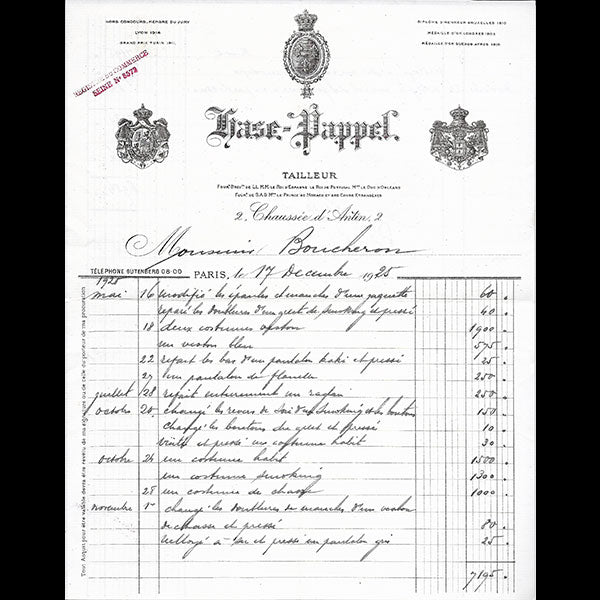 HORS CONCOURS, MEMBRE DU JURY
LYON 1914
GRAND PRIX TURIN 1911
DIPLÔME D'HONNEUR BRUXELLES 1910
MÉDAILLE D'OR LONDRES
MÉDAILLE D'OR BUENOS AYRES 1910
REGISTRE DU COMMERCE
SEINE Nº
Hase-Pappel.
TAILLEUR
LL. M.M. LE ROI D'ESPAGNE LE ROI DE PORTUGAL LE DUC D'ORLÉANS
S.A.S. LE PRINCE DE MONACO ET DES COURS ÉTRANGÈRES
2, Chaussée d'Antin, 2
Monsieur Boucheron
TÉLÉPHONE GUTENBERG 08-00
PARIS, le 17 Decembre 1925
1925
mai 16 modifié les épaules et manches d'une jaquette 60 "
reparé les doublures d'un gilet de smoking et pressé 40 "
18 deux costumes veston 1900 "
un veston bleu 575 "
22 refait les bas d'un pantalon kaki et pressé 25 "
27 un pantalon de flanelle 250 "
juillet 28 refait entierement un raglan 250 "
octobre 20 changé les revers de soie d'un smoking et les boutons 150 "
changé les boutons du gilet et pressé 10 "
visité et pressé un costume habit 30 "
octobre 24 un costume habit 1500 "
un costume smoking 1300 "
28 un costume de chasse 1000 "
novembre changé les doublures de manches d'un veston
de chasse et pressé 80 "
nettoyé à sec et pressé un pantalon gris 25 "
7195 "